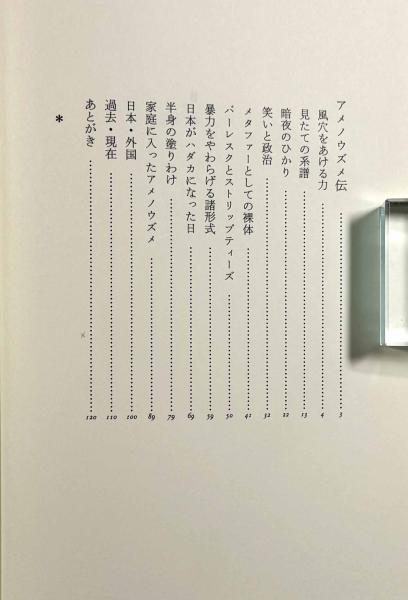 アメノウズメ伝……3
風穴をあける力……4
見たての系譜……13
暗夜のひかり……22
笑いと政治……32
メタファーとしての裸体……41
バーレスクとストリップティーズ……50
暴力をやわらげる諸形式……59
日本がハダカになった日……69
半身の塗りわけ……79
家庭に入ったアメノウズメ……89
日本・外国……100
過去・現在……110
あとがき……120
*